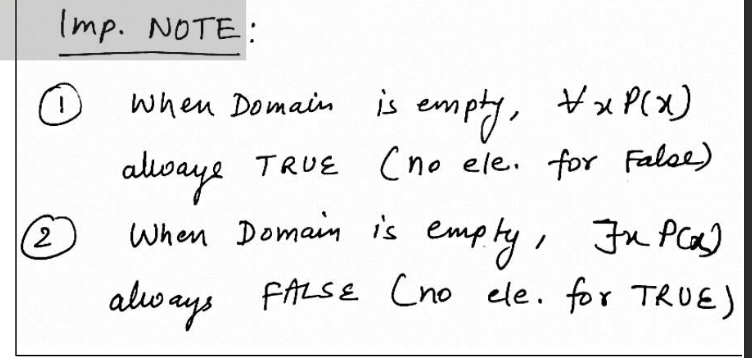 Imp. NOTE:
① When Domain is empty, ∀x P(x)
always TRUE (no ele. for False)
② When Domain is empty, ∃x P(x)
always FALSE (no ele. for TRUE)